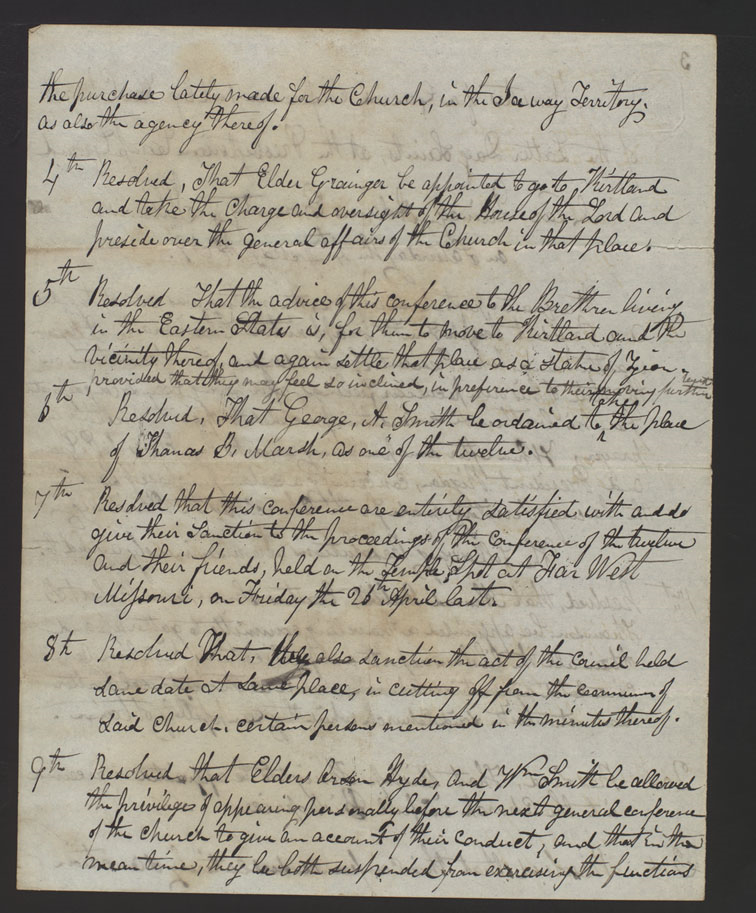 the purchase lately made for the Church, in the Ioway Territory,
as also the agency thereof.
4th Resolved, That Elder Grainger be appointed to go to Kirtland
and take the Charge and oversight of the House of the Lord and
preside over the general affairs of the Church in that place.
5th Resolved That the advice of this conference to the Brethren living
in the Eastern States is, for them to move to Kirtland and the
vicinity thereof, and again settle that place as a stake of Zion.
provided that they may feel so inclined, in preference to their moving further
west
6th Resolved, That George, A. Smith be ordained to take the place
of Thomas B. Marsh, as one of the twelve.
7th Resolved that this conference are entirely satisfied with and do
give their Sanction to the proceedings of the Conference of the twelve
and their friends, held on the Temple Spot at Far West
Missouri, on Friday the 26th April last.
8th Resolved That, they also sanction the act of the Council held
same date at same place, in cutting off from the communn of
said Church, certain persons mentioned in the minutes thereof.
9th Resolved that Elders Orson Hyde, and Wm Smith be allowed
the privileges of appearing personally before the next general conference
of the church to give an account of their conduct, and that in the
mean time, they be both suspended from exercising the functions